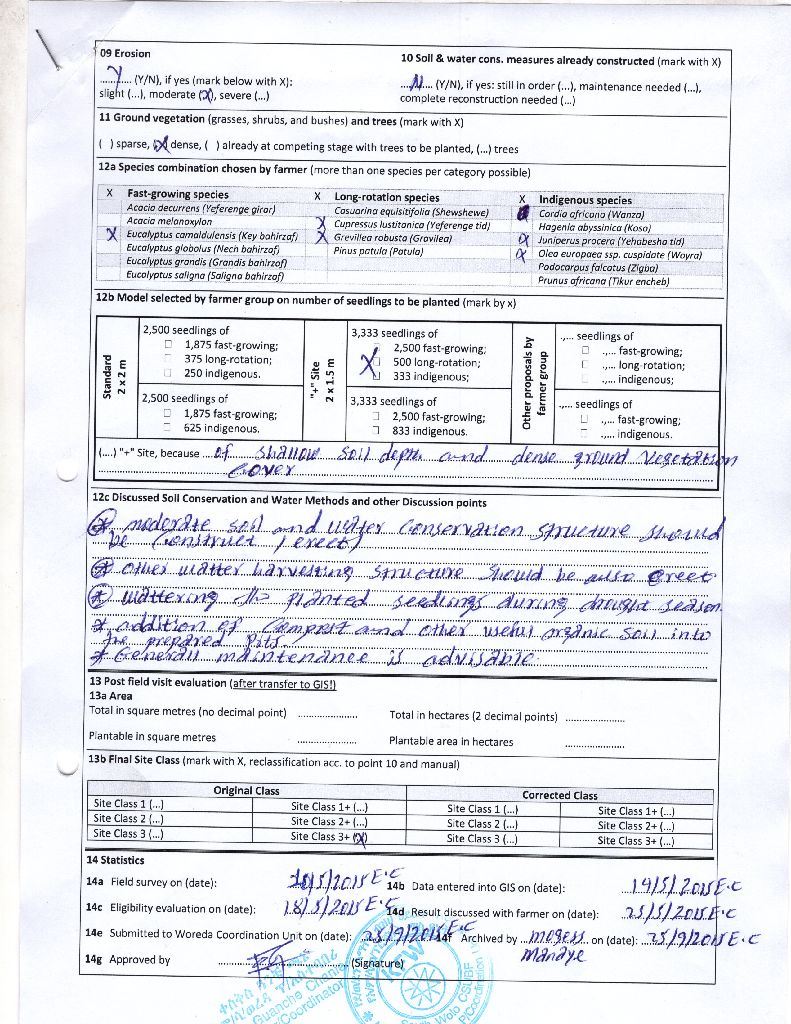 09 Erosion
10 Soil & water cons. measures already constructed (mark with X)
...Y.... (Y/N), if yes (mark below with X):
slight (...), moderate (X), severe (...)
...N.... (Y/N), if yes: still in order (...), maintenance needed (...),
complete reconstruction needed (...)
11 Ground vegetation (grasses, shrubs, and bushes) and trees (mark with X)
( ) sparse, (X) dense, ( ) already at competing stage with trees to be planted, (...) trees
12a Species combination chosen by farmer (more than one species per category possible)
X Fast-growing species
Acacia decurrens (Yeferenge girar)
Acacia melanoxylon
X Eucalyptus camaldulensis (Key bahirzaf)
Eucalyptus globolus (Nech bahirzaf)
Eucalyptus grandis (Grandis bahirzaf)
Eucalyptus saligna (Saligna bahirzaf)
X Long-rotation species
Casuarina equisitifolia (Shewshewe)
X Cupressus lustitanica (Yeferenge tid)
X Grevillea robusta (Gravilea)
Pinus patula (Patula)
X Indigenous species
Cordia africana (Wanza)
Hagenia abyssinica (Koso)
X Juniperus procera (Yehabesha tid)
X Olea europaea ssp. cuspidate (Woyra)
Podocarpus falcatus (Zigba)
Prunus africana (Tikur encheb)
12b Model selected by farmer group on number of seedlings to be planted (mark by x)
Standard
2 x 2 m
2,500 seedlings of
☐ 1,875 fast-growing;
☐ 375 long-rotation;
☐ 250 indigenous.
2,500 seedlings of
☐ 1,875 fast-growing;
☐ 625 indigenous.
"+" Site
2 x 1.5 m
3,333 seedlings of
☐ 2,500 fast-growing;
X 500 long-rotation;
☐ 333 indigenous;
3,333 seedlings of
☐ 2,500 fast-growing;
☐ 833 indigenous.
Other proposals by
farmer group
.,... seedlings of
☐ .,... fast-growing;
☐ .,... long-rotation;
☐ .,... indigenous;
.,... seedlings of
☐ .,... fast-growing;
☐ .,... indigenous.
(....) "+" Site, because ... of shallow soil depth and dense ground vegetation
cover
12c Discussed Soil Conservation and Water Methods and other Discussion points
* moderate soil and water conservation structure should
be construct (erect)
* other watter harvesting structure should be also erect
* wattering the planted seedlings during drought season
* addition of compost and other useful organic soil into
the prepared pits.
* Generall maintenance is advisable.
13 Post field visit evaluation (after transfer to GIS!)
13a Area
Total in square metres (no decimal point) ....................
Total in hectares (2 decimal points) ....................
Plantable in square metres ....................
Plantable area in hectares ....................
13b Final Site Class (mark with X, reclassification acc. to point 10 and manual)
Original Class
Corrected Class
Site Class 1 (...) Site Class 1+ (...) Site Class 1 (...) Site Class 1+ (...)
Site Class 2 (...) Site Class 2+ (...) Site Class 2 (...) Site Class 2+ (...)
Site Class 3 (...) Site Class 3+ (X) Site Class 3 (...) Site Class 3+ (...)
14 Statistics
14a Field survey on (date): /5/2015 E.C
14b Data entered into GIS on (date): 19/5/2015 E.C
14c Eligibility evaluation on (date): 18/5/2015 E.C
14d Result discussed with farmer on (date): 25/5/2015 E.C
14e Submitted to Woreda Coordination Unit on (date): 25/9/2015 E.C
14f Archived by ... Mogess ... on (date): 25/9/2015 E.C
Mandye
14g Approved by .................... (Signature)
Guanche
Coordinator
South Wolo CSUBF
P/Coordination